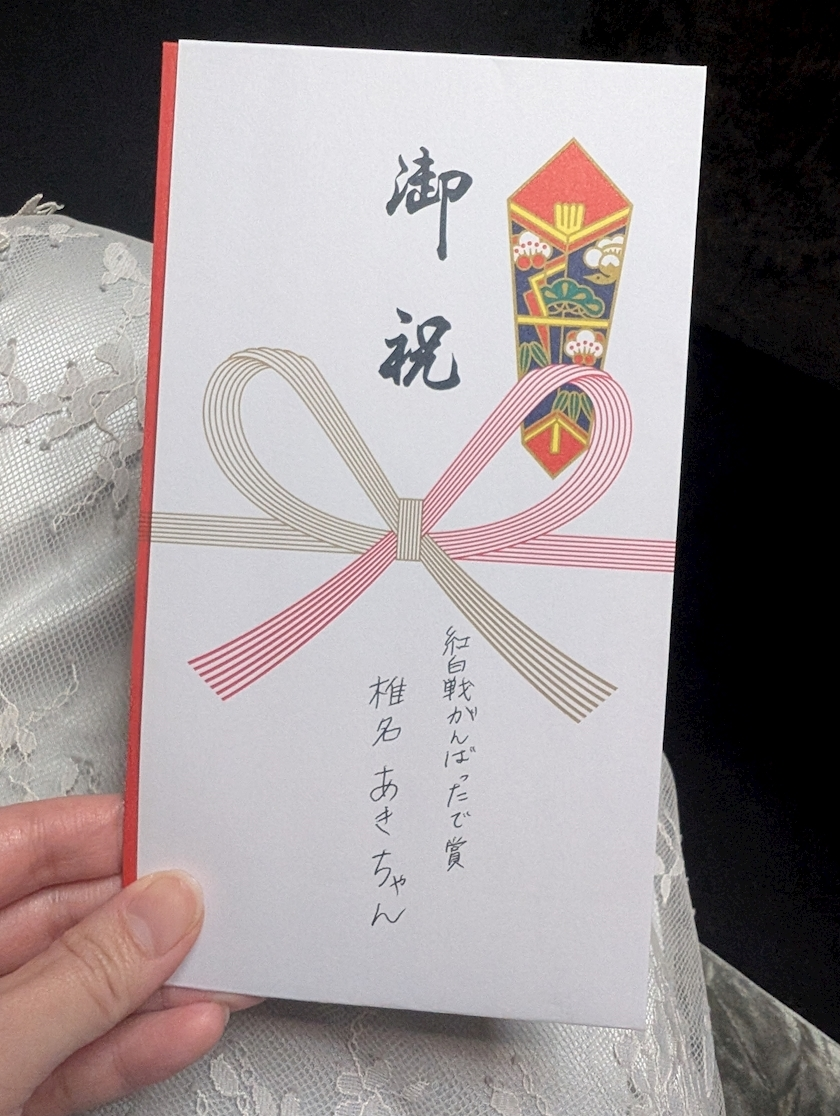 御祝
紅白戦がんばったで賞
椎名 あきちゃん